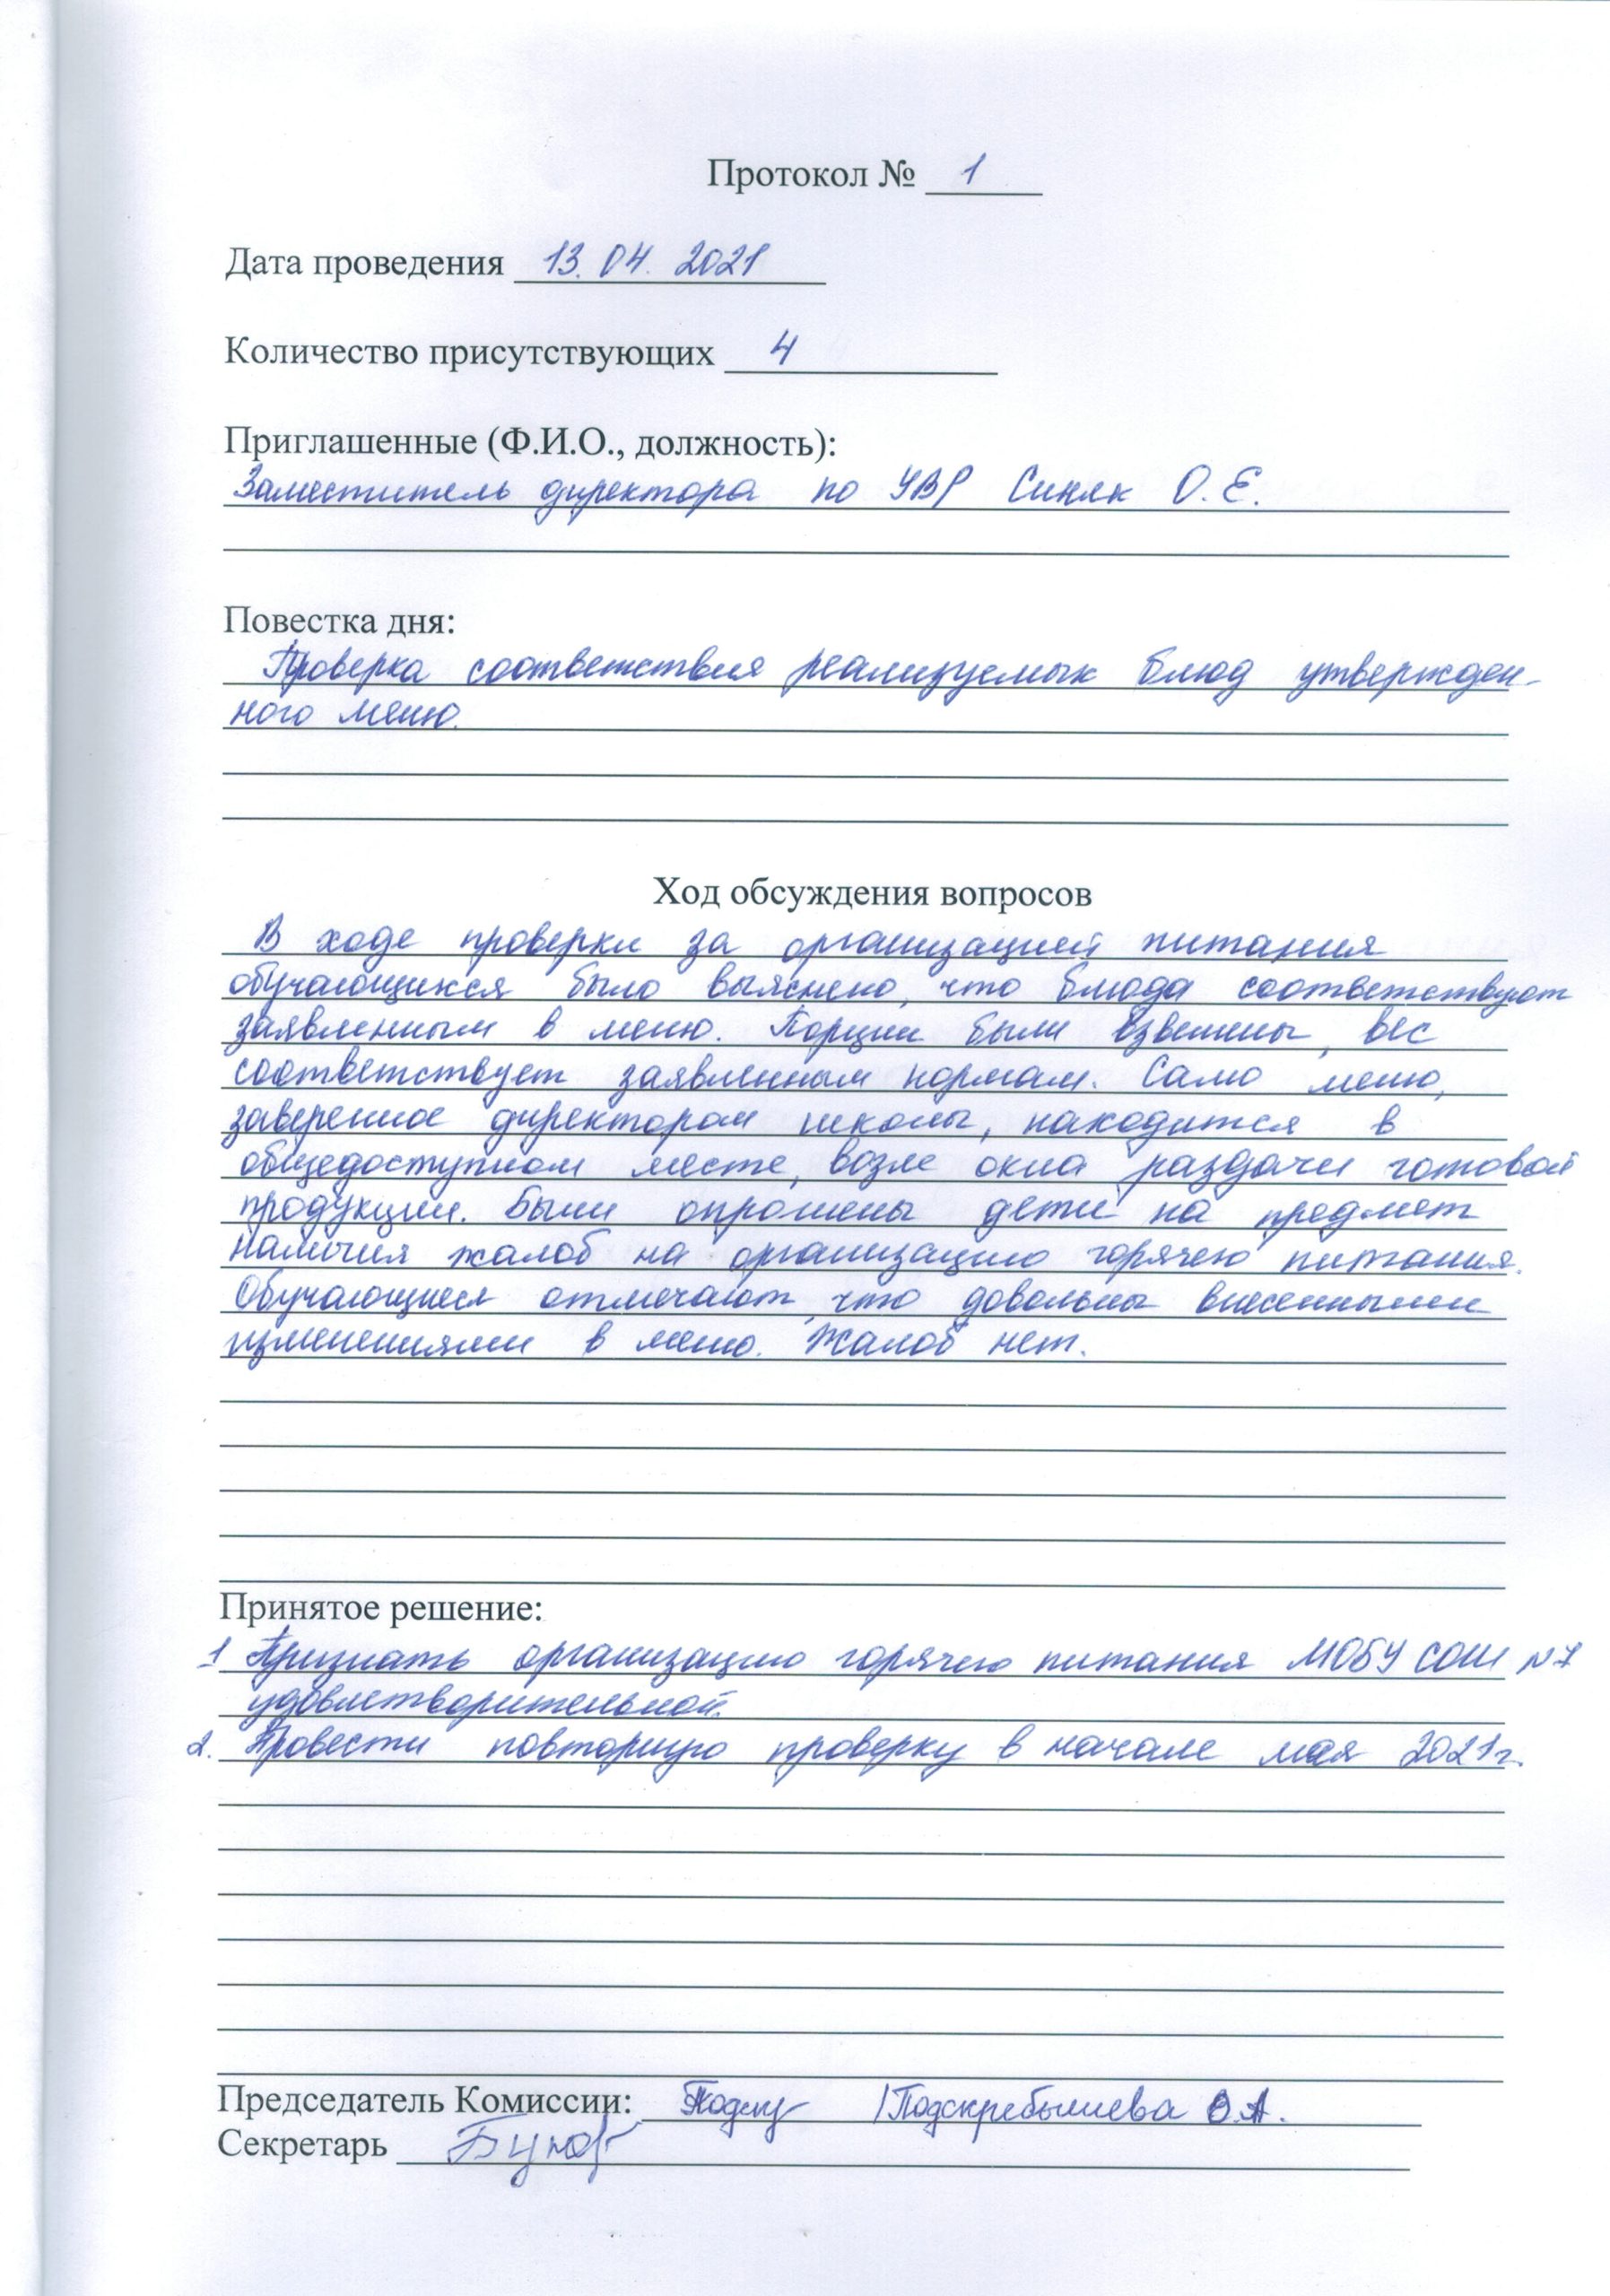 Протокол № 1
Дата проведения 13.04.2021
Количество присутствующих 4
Приглашенные (Ф.И.О., должность):
Заместитель директора по УВР Синяк О.Е.
Повестка дня:
Проверка соответствия реализуемых блюд утвержден-
ного меню.
Ход обсуждения вопросов
В ходе проверки за организацией питания
обучающихся было выяснено, что блюда соответствуют
заявленным в меню. Порции были взвешены, вес
соответствует заявленным нормам. Само меню,
заверенное директором школы, находится в
общедоступном месте, возле окна раздачи готовой
продукции. Были опрошены дети на предмет
наличия жалоб на организацию горячего питания.
Обучающиеся отмечают, что довольны внесенными
изменениями в меню. Жалоб нет.
Принятое решение:
1 Признать организацию горячего питания МОБУ СОШ №7
удовлетворительной.
2. Провести повторную проверку в начале мая 2021г.
Председатель Комиссии: /Подскребышева О.А.
Секретарь